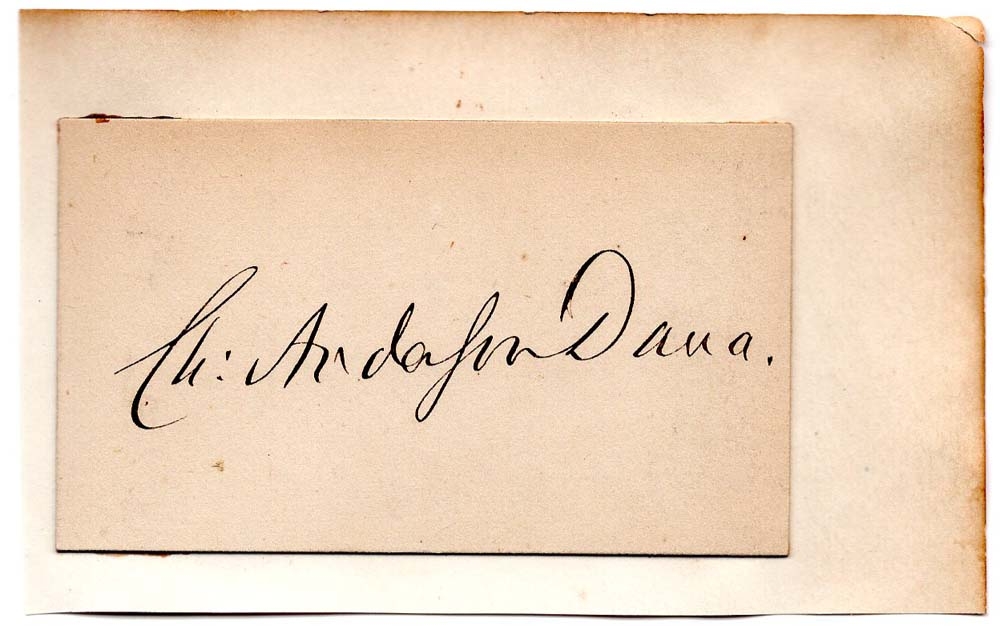 Ch: Anderson Dana.